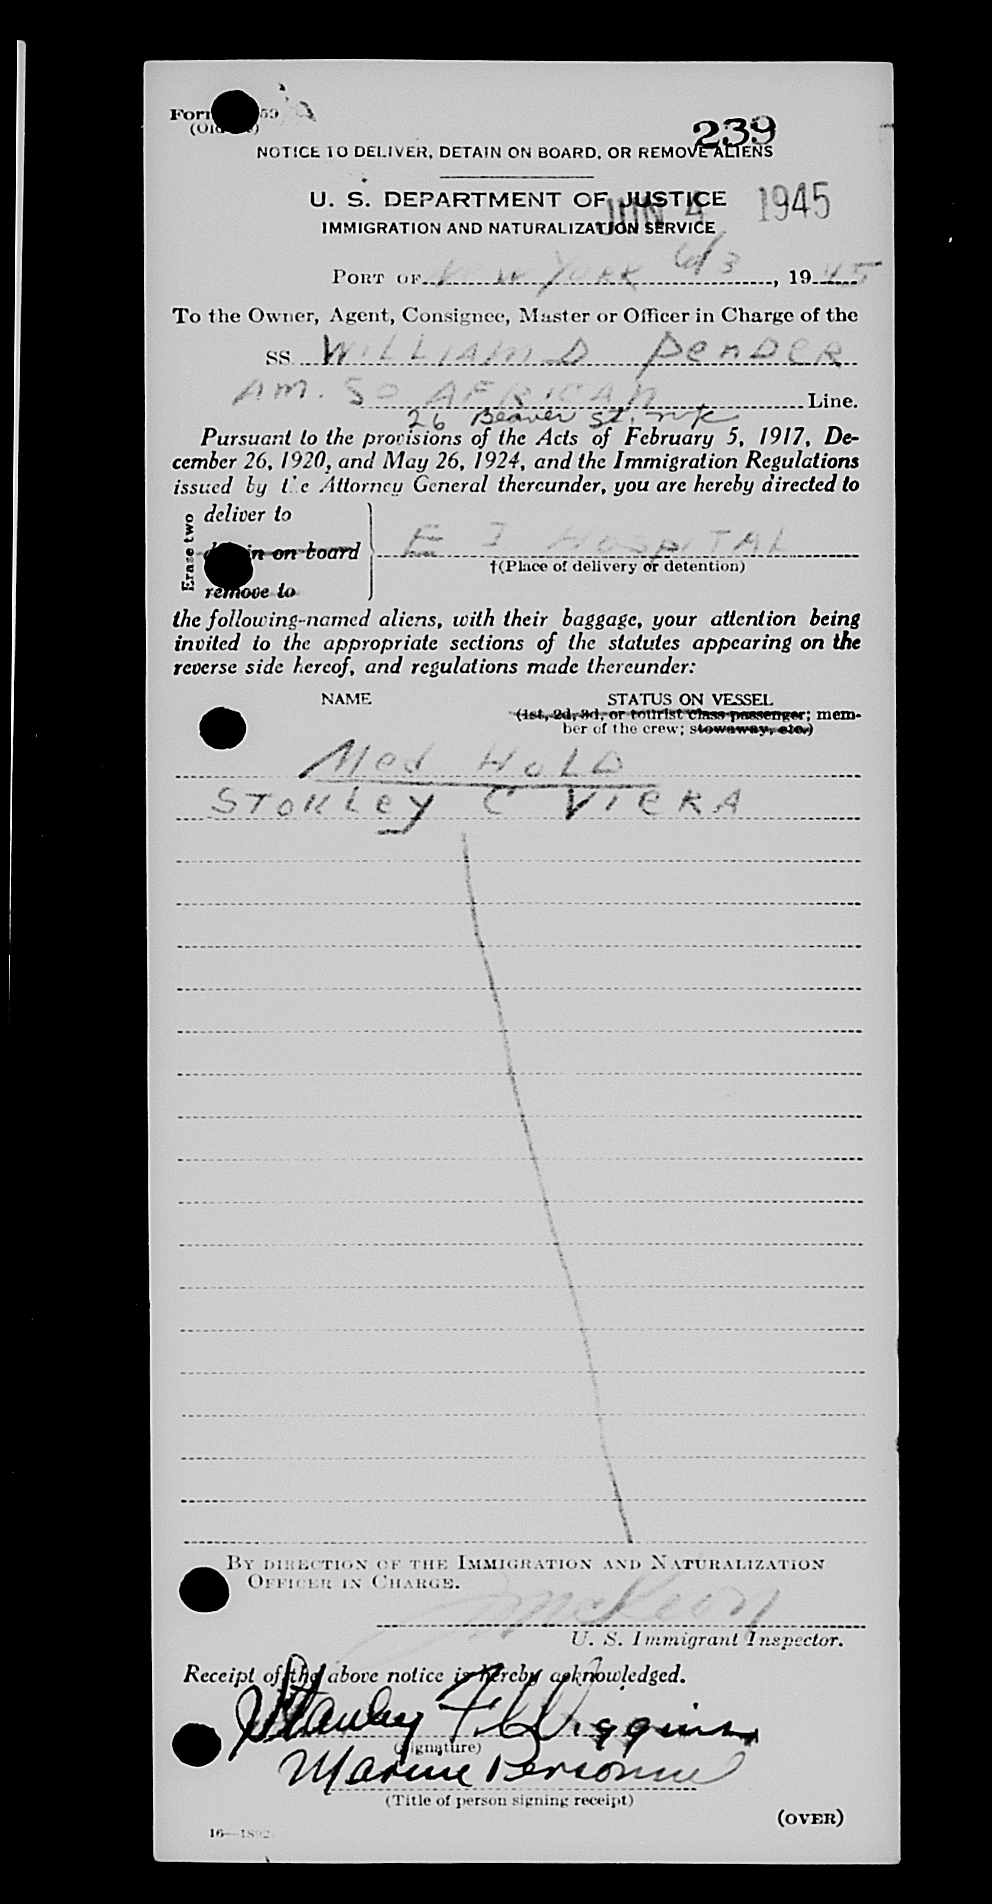 239
NOTICE TO DELIVER, DETAIN ON BOARD, OR REMOVE ALIENS
U. S. DEPARTMENT OF JUSTICE
JUN 4 1945
IMMIGRATION AND NATURALIZATION SERVICE
PORT OF NEW YORK 6/3, 1945
To the Owner, Agent, Consignee, Master or Officer in Charge of the
SS. WILLIAM D PENDER
AM. SO AFRICAN Line.
26 Beaver St. NYC
Pursuant to the provisions of the Acts of February 5, 1917, De-
cember 26, 1920, and May 26, 1924, and the Immigration Regulations
issued by the Attorney General thereunder, you are hereby directed to
Erase two
deliver to
in on board
remove to
E I HOSPITAL
†(Place of delivery or detention)
the following-named aliens, with their baggage, your attention being
invited to the appropriate sections of the statutes appearing on the
reverse side hereof, and regulations made thereunder:
NAME STATUS ON VESSEL
(1st, 2d, 3d, or tourist class passenger; mem-
ber of the crew; stowaway, etc.)
Med HOLD
STOKLEY C VIERA
BY DIRECTION OF THE IMMIGRATION AND NATURALIZATION
OFFICER IN CHARGE.
McKeon
U. S. Immigrant Inspector.
Receipt of the above notice is hereby acknowledged.
Stanley F Wiggins
(Signature)
Marine Personnel
(Title of person signing receipt)
(OVER)